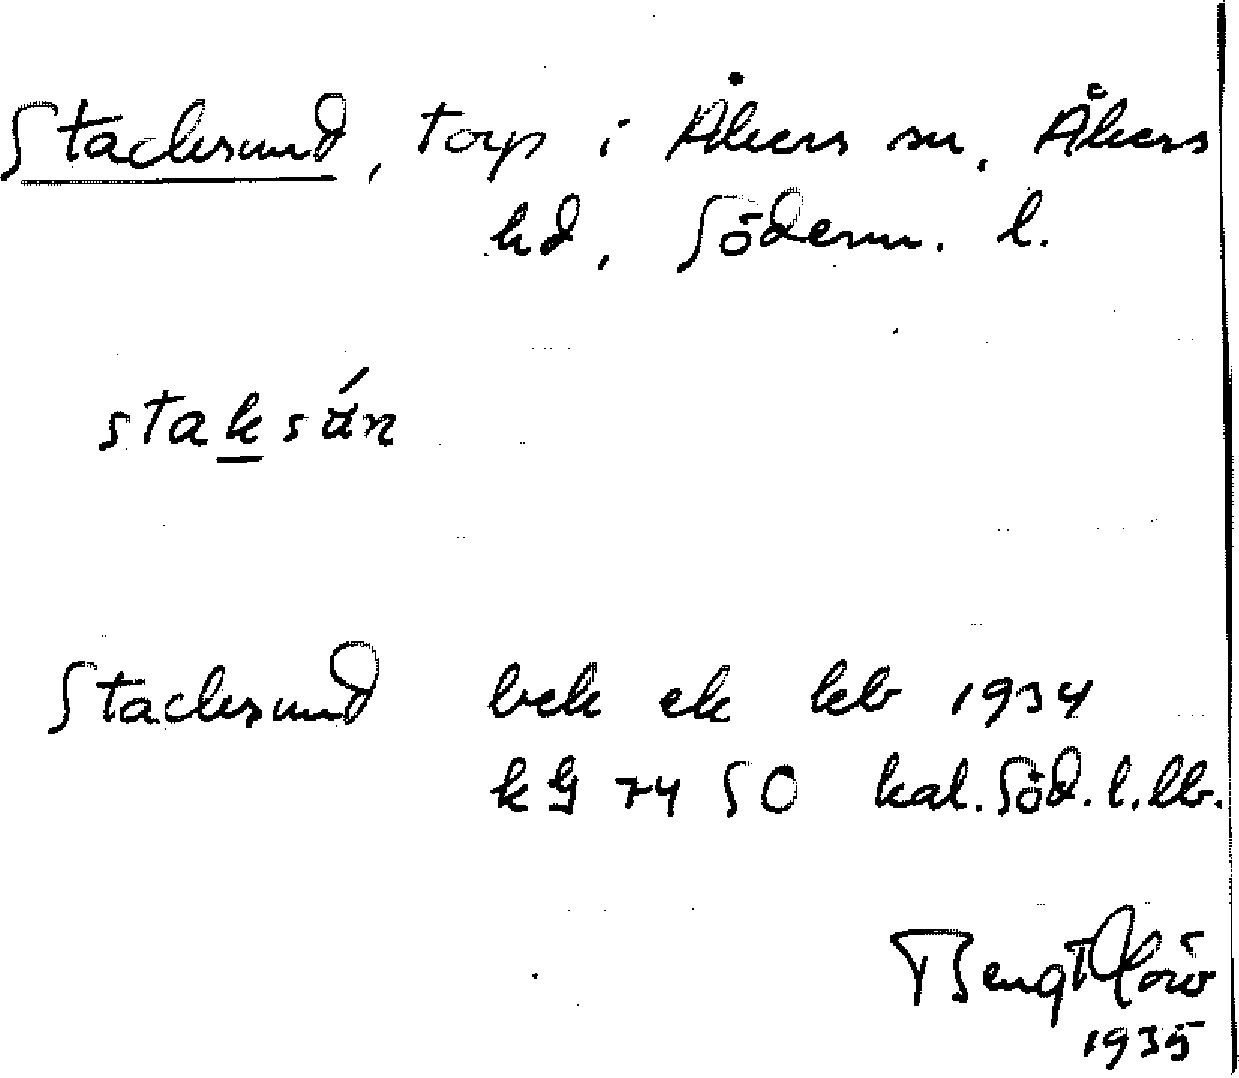 Stacksund, torp i Åkers sn. Åkers
hd, Söderm. l.
staksán
Stacksund bek ek kb 1934
kg 74 SO kal. Söd. l. lb.
Bengt
1935